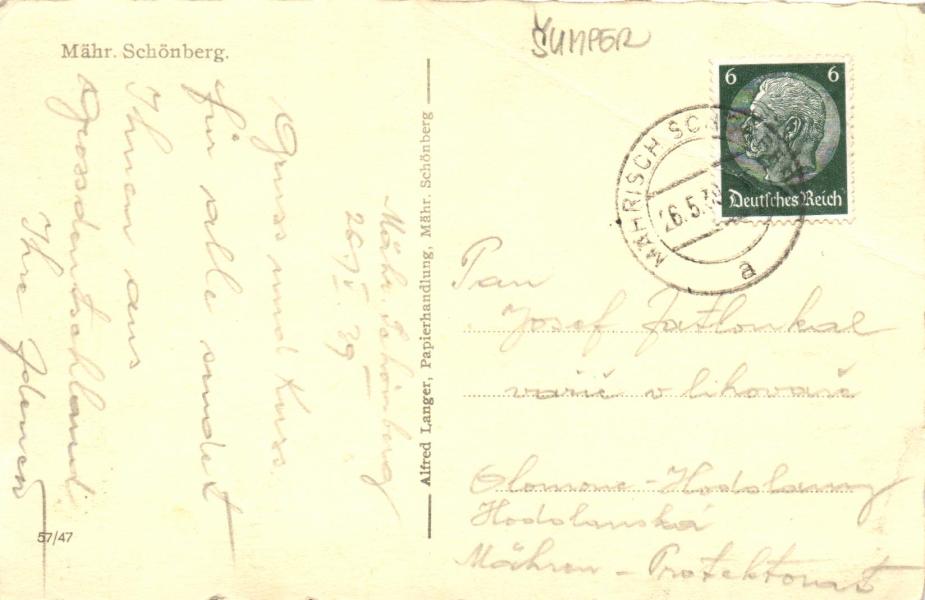 Mähr. Schönberg.
ŠUMPER
6 6
Deutsches Reich
MÄHRISCH SCHÖNBERG
26.5.39
a
Mähr. Schönberg
26. V. 39
Gruss und Kuss
für alle sendet
Ihnen aus
Grossdeutschland
Ihre
Alfred Langer, Papierhandlung, Mähr. Schönberg
Pan
Josef Zatloukal
vařič v lihovaře
Olomouc - Hodolany
Hodolanská
Mähren - Protektorat
57/47